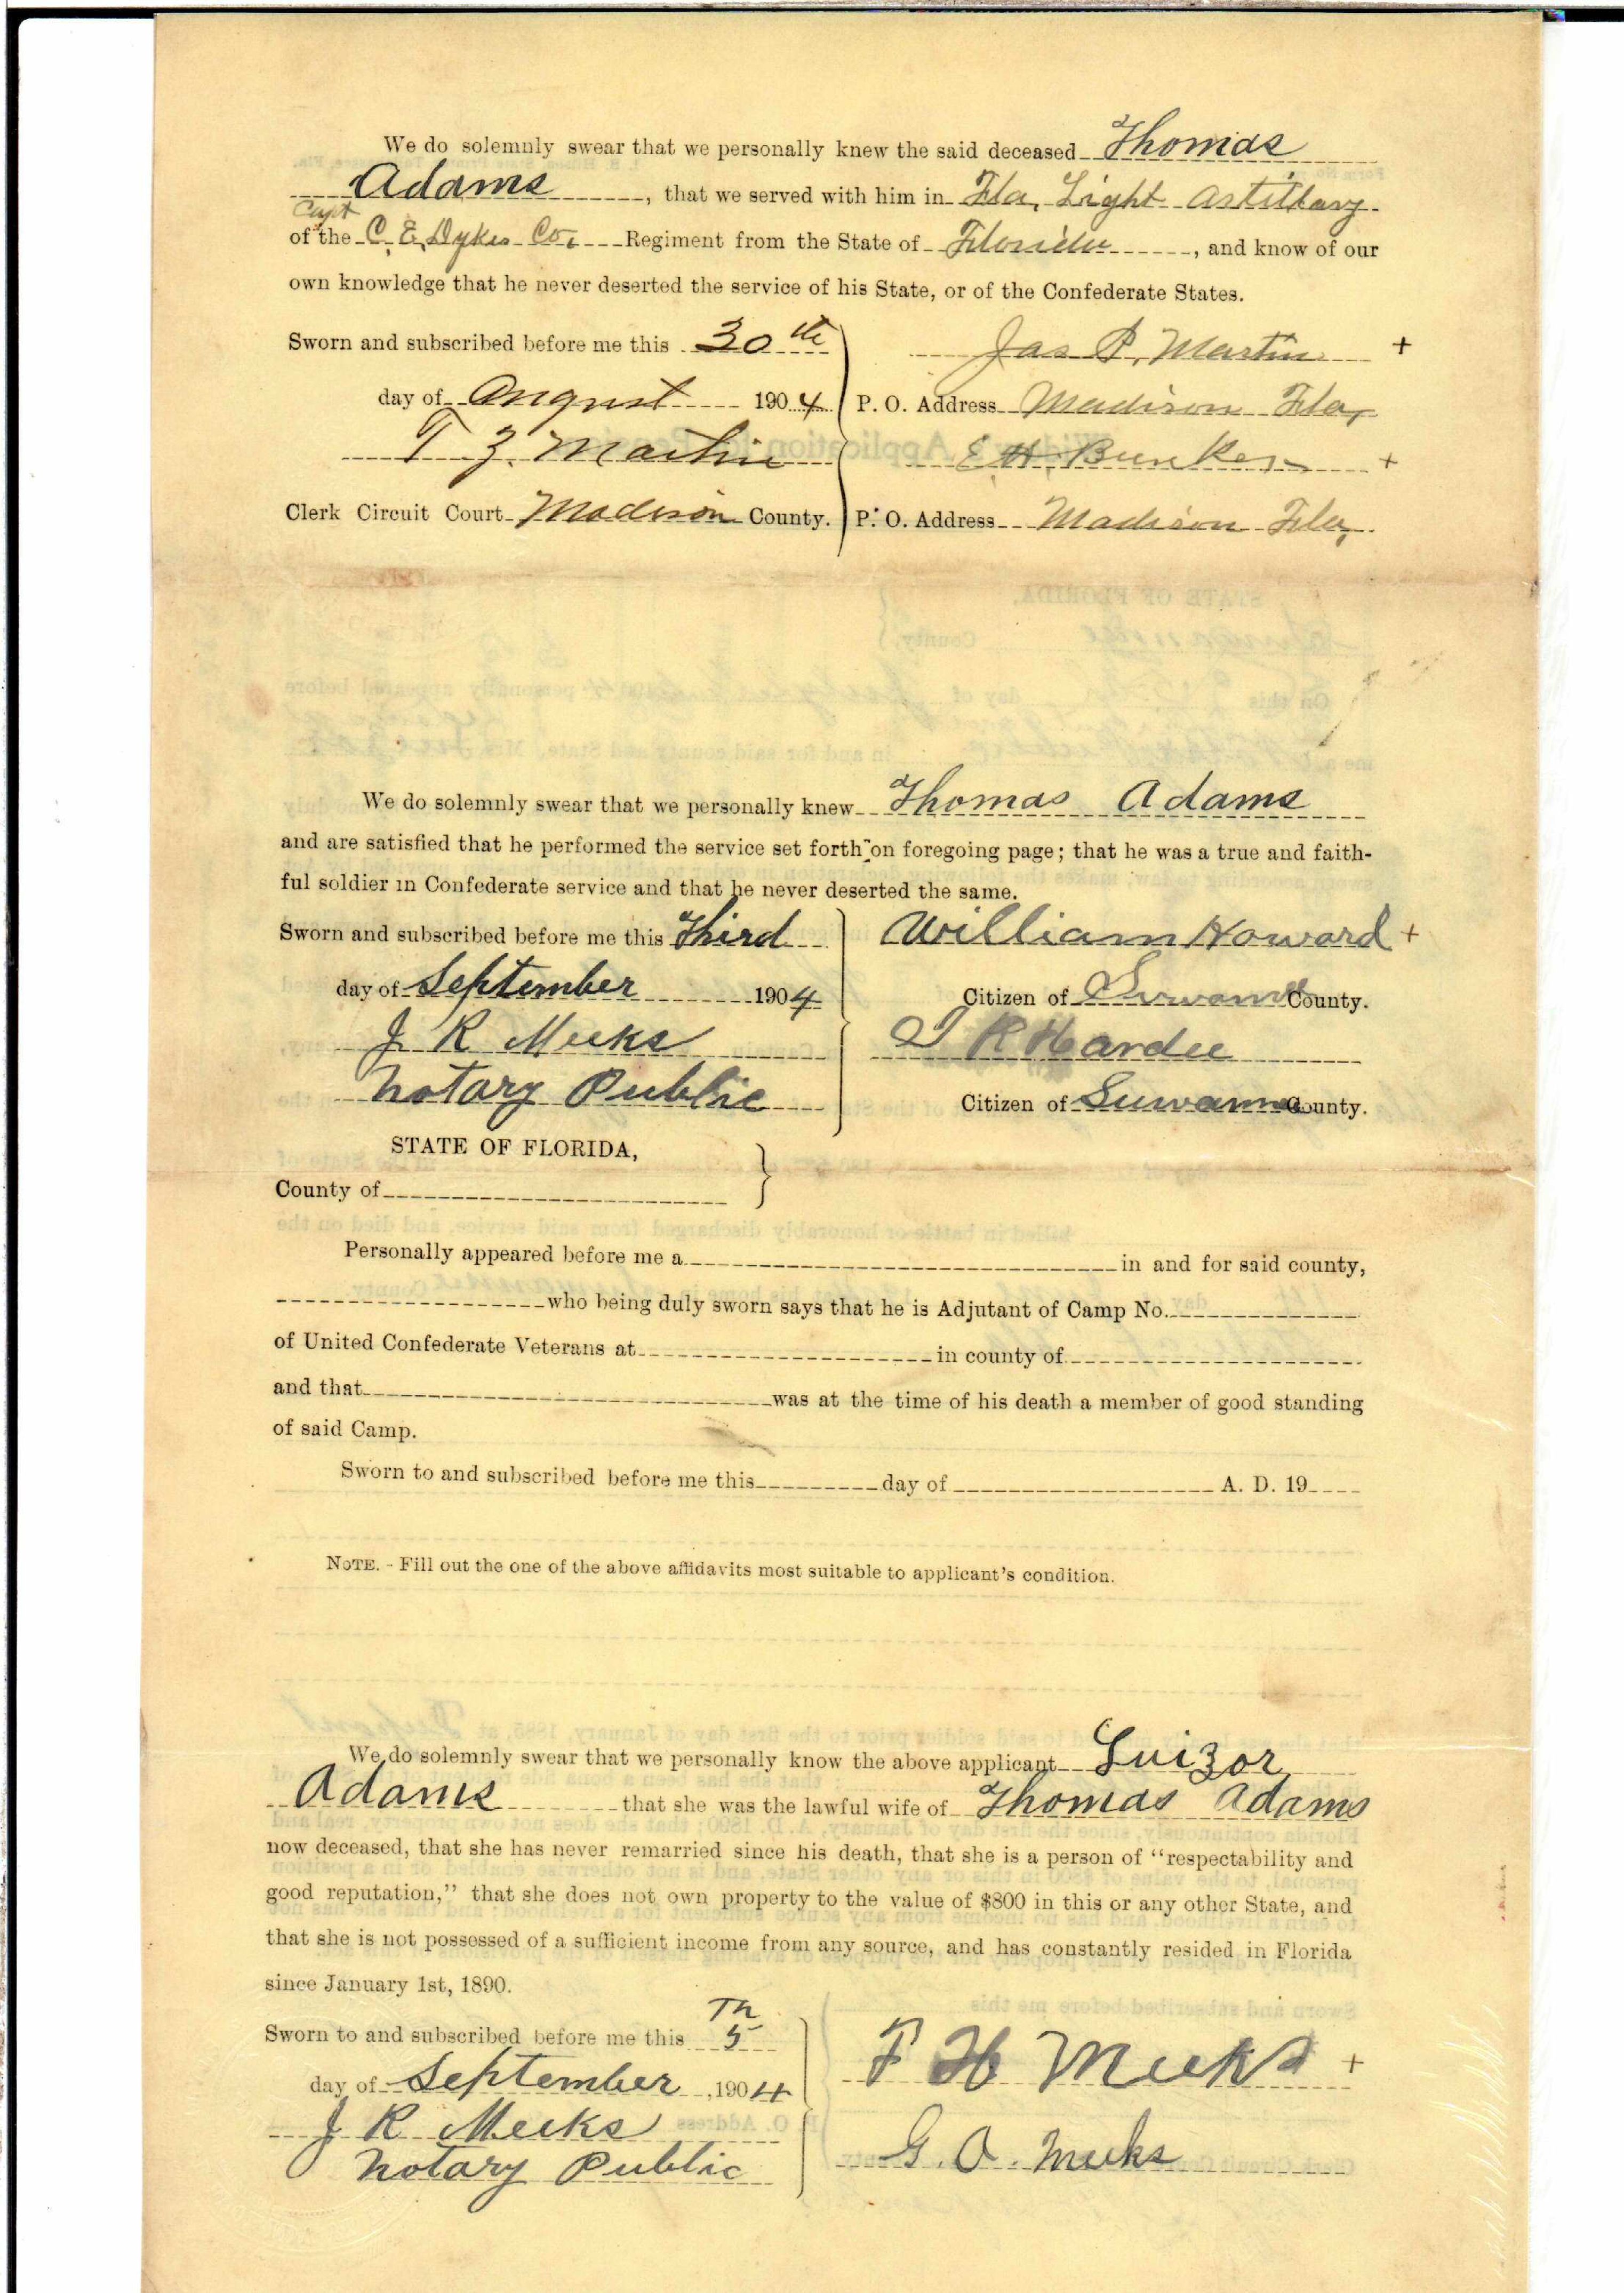 We do solemnly swear that we personally knew the said deceased Thomas
Adams, that we served with him in Fla, Light Artillary
Capt
of the C. E. Dykes Co. Regiment from the State of Florida, and know of our
own knowledge that he never deserted the service of his State, or of the Confederate States.
Sworn and subscribed before me this 30th
Jas P. Martin +
day of August 1904
P. O. Address Madison Fla,
T Z. Martin
E H Bunker +
Clerk Circuit Court Madison County.
P. O. Address Madison Fla,
We do solemnly swear that we personally knew Thomas Adams
and are satisfied that he performed the service set forth on foregoing page; that he was a true and faith-
ful soldier in Confederate service and that he never deserted the same.
Sworn and subscribed before me this Third
William Howard +
day of September 1904
Citizen of Suwannee County.
J R Meeks
R Hardee
Notary Public
Citizen of Suwannee County.
STATE OF FLORIDA,
County of
Personally appeared before me a in and for said county,
who being duly sworn says that he is Adjutant of Camp No.
of United Confederate Veterans at in county of
and that was at the time of his death a member of good standing
of said Camp.
Sworn to and subscribed before me this day of A. D. 19
NOTE. - Fill out the one of the above affidavits most suitable to applicant's condition.
We do solemnly swear that we personally know the above applicant Luizor
Adams that she was the lawful wife of Thomas Adams
now deceased, that she has never remarried since his death, that she is a person of "respectability and
good reputation," that she does not own property to the value of $800 in this or any other State, and
that she is not possessed of a sufficient income from any source, and has constantly resided in Florida
since January 1st, 1890.
Sworn to and subscribed before me this 5 Th
F H Meeks +
day of September, 1904
J R Meeks
G. A. Meeks
Notary Public